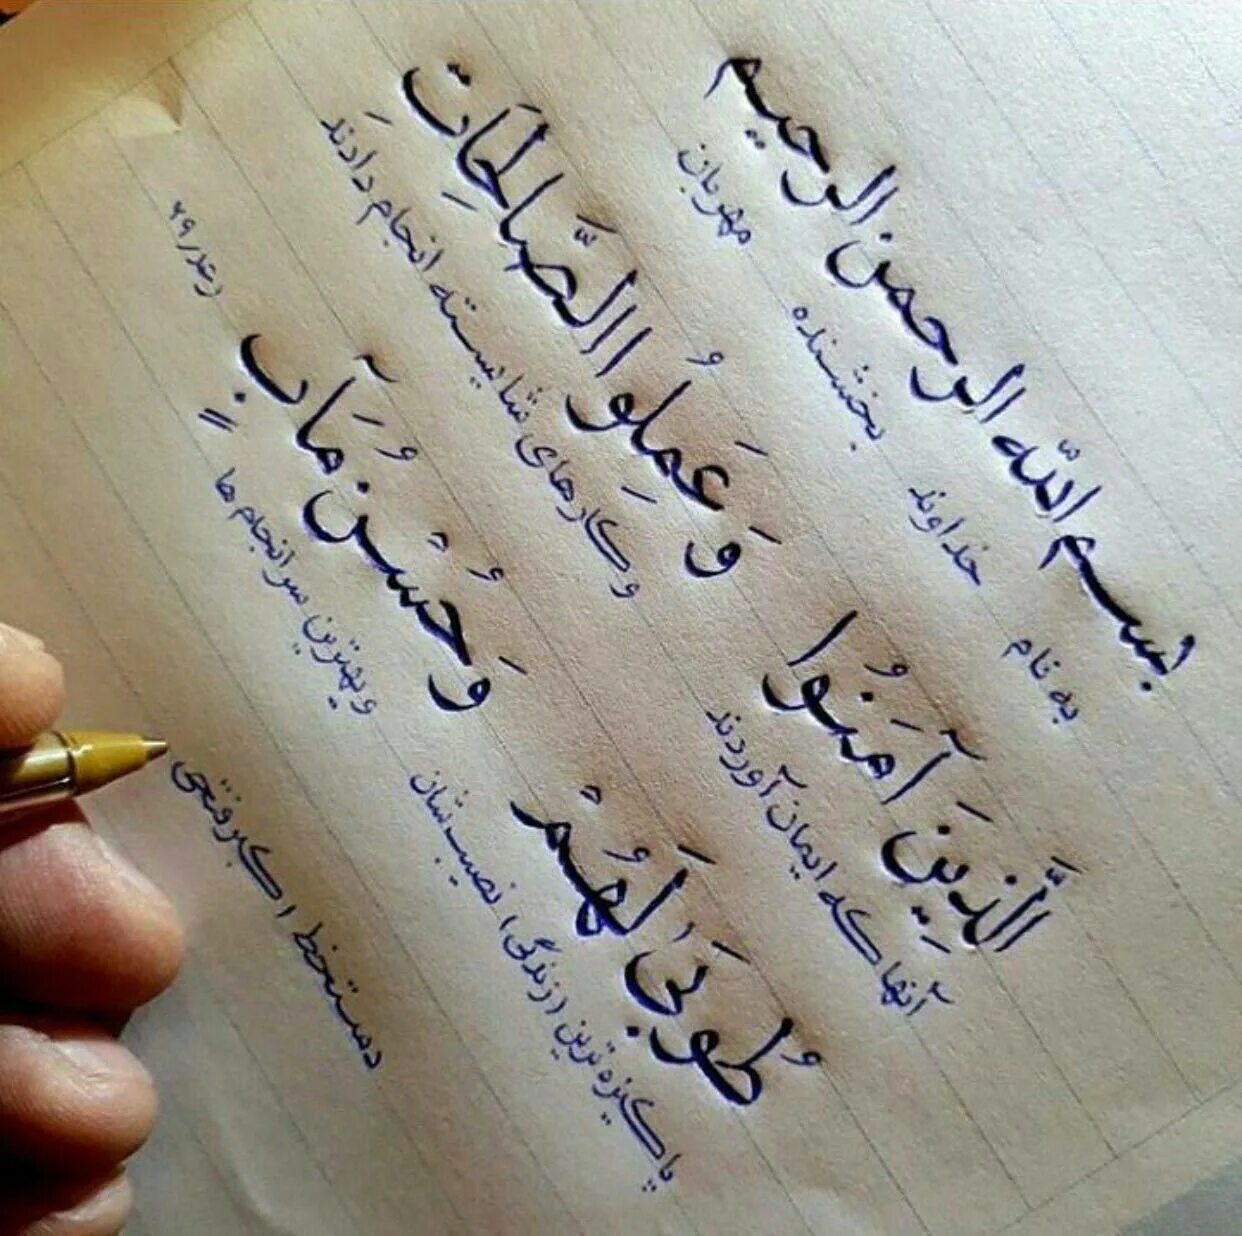 بسم الله الرحمن الرحیم
به نام خداوند بخشنده مهربان
الَّذِینَ آمَنُوا وَ عَمِلُوا الصَّالِحَاتِ
آنها که ایمان آوردند و کارهای شایسته انجام دادند
طُوبَىٰ لَهُمْ وَ حُسْنُ مَآبٍ
پاکیزه ترین (زندگی) نصیب‌شان و بهترین سرانجام‌ها
رعد/۲۹
دستخط اکبر فتحی